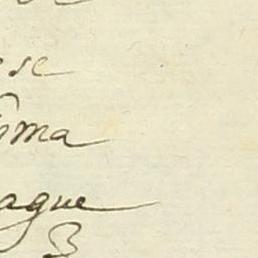 se
ôma
ague
3